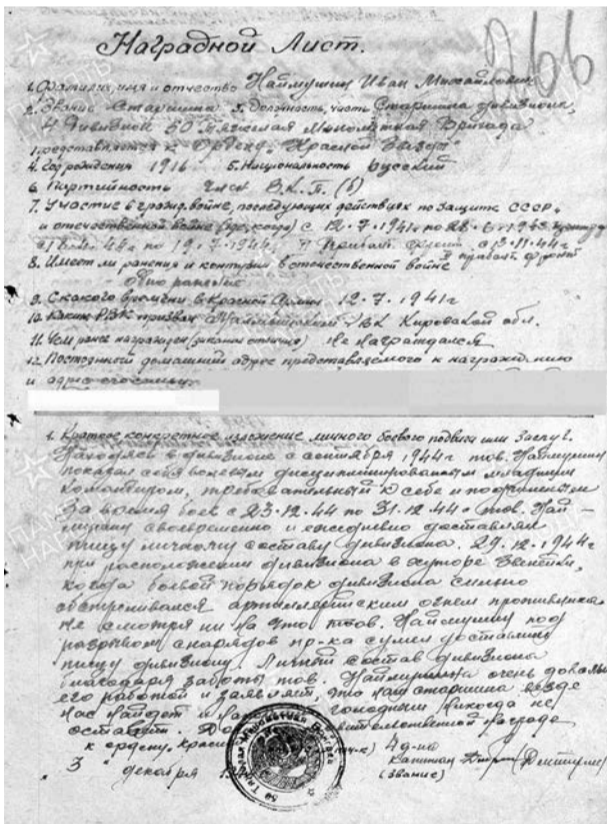 266
Наградной Лист.
1. Фамилия, имя и отчество Наймушин Иван Михайлович
2. Звание Старшина 3. Должность, часть Старшина дивизиона,
4 Дивизион 50 Тяжелая Минометная Бригада
Представляется к Ордену "Красной Звезды"
4. Год рождения 1916 5. Национальность русский
6. Партийность член В.К.П.(б)
7. Участие в гражд. войне, последующих действиях по защите СССР,
и отечественной войне (где, когда) с 12.7.1941 по
по 19.7.1944г Прибалт фронт с 3.11.44г
2 прибалт фронт
8. Имеет ли ранения и контузии в отечественной войне
одно ранение
9. С какого времени в Красной Армии 12.7.1941г
10. Каким РВК призван РВК Кировской обл.
11. Чем ранее награжден (за какие отличия) Не награждался
12. Постоянный домашний адрес представляемого к награждению
и адрес его семьи
1. Краткое конкретное изложение личного боевого подвига или заслуг.
Находясь в дивизионе с сентября 1944г тов. Наймушин
показал себя волевым дисциплинированным младшим
командиром, требовательный к себе и подчиненным
За время боев с 23.12.44 по 31.12.44г тов. Най-
мушин своевременно и ежедневно доставлял
пищу личному составу дивизиона. 29.12.1944г
при расположении дивизиона в хуторе
когда боевой порядок дивизиона сильно
обстреливался артиллерийским огнем противника.
Не смотря ни на что тов. Наймушин под
разрывом снарядов пр-ка сумел доставить
пищу дивизиону. Личный состав дивизиона
благодаря заботы тов. Наймушина очень доволен
его работой и заявляет, что наш старшина везде
нас найдет и голодным никогда не
оставит. награде
к ордену, 4 д-на
"3" декабря Капитан
(звание)